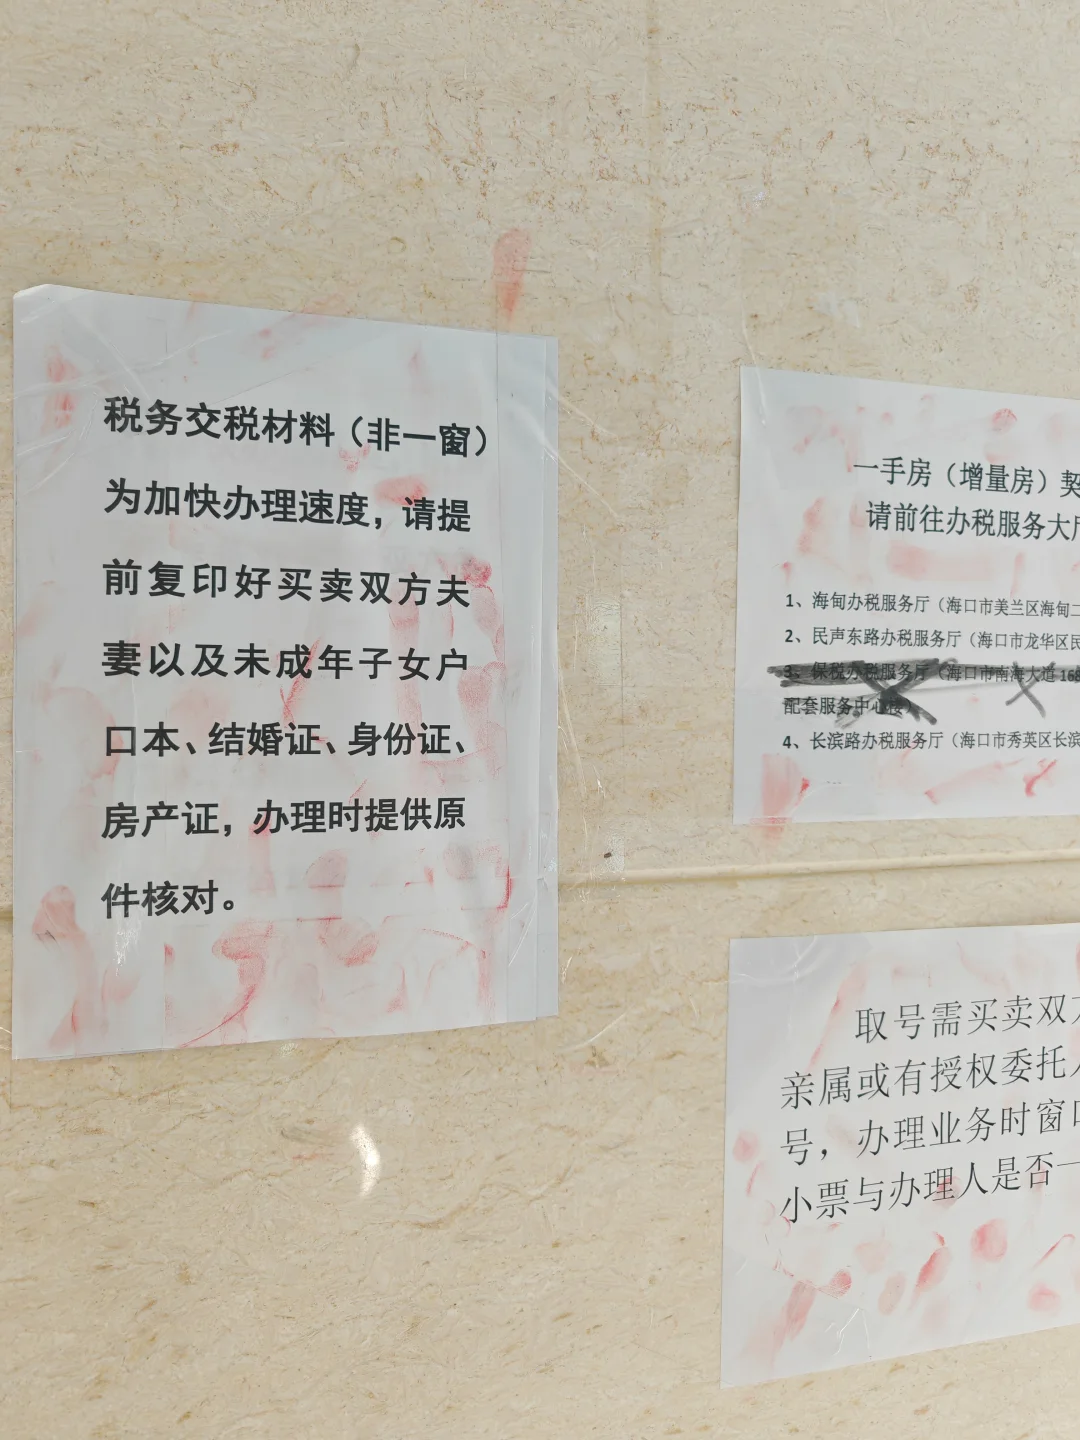 税务交税材料（非一窗）
为加快办理速度，请提
前复印好买卖双方夫
妻以及未成年子女户
口本、结婚证、身份证、
房产证，办理时提供原
件核对。
一手房（增量房）契
请前往办税服务大厅
1、海甸办税服务厅（海口市美兰区海甸二
2、民声东路办税服务厅（海口市龙华区民
3、保税办税服务厅（海口市南海大道168
配套服务中心楼）
4、长滨路办税服务厅（海口市秀英区长滨
取号需买卖双方
亲属或有授权委托人
号，办理业务时窗口
小票与办理人是否一